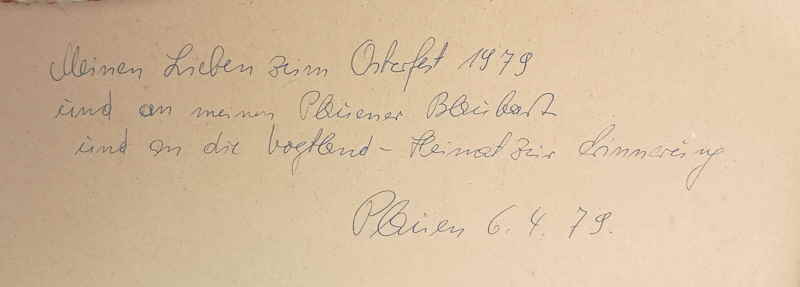 Meinen Lieben zum Osterfest 1979
und an meinen Plauener Blaubart
und an die Vogtland - Heimat zur Erinnerung
Plauen 6. 4. 79.